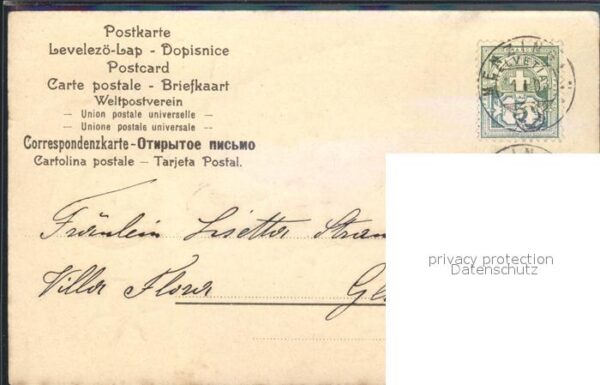 Postkarte
Levelezö-Lap - Dopisnice
Postcard
Carte postale - Briefkaart
Weltpostverein
— Union postale universelle —
— Unione postale universale —
Correspondenzkarte-Открытое письмо
Cartolina postale — Tarjeta Postal.
HELVETIA
Fräulein Lisetta
Villa Flora
privacy protection
Datenschutz